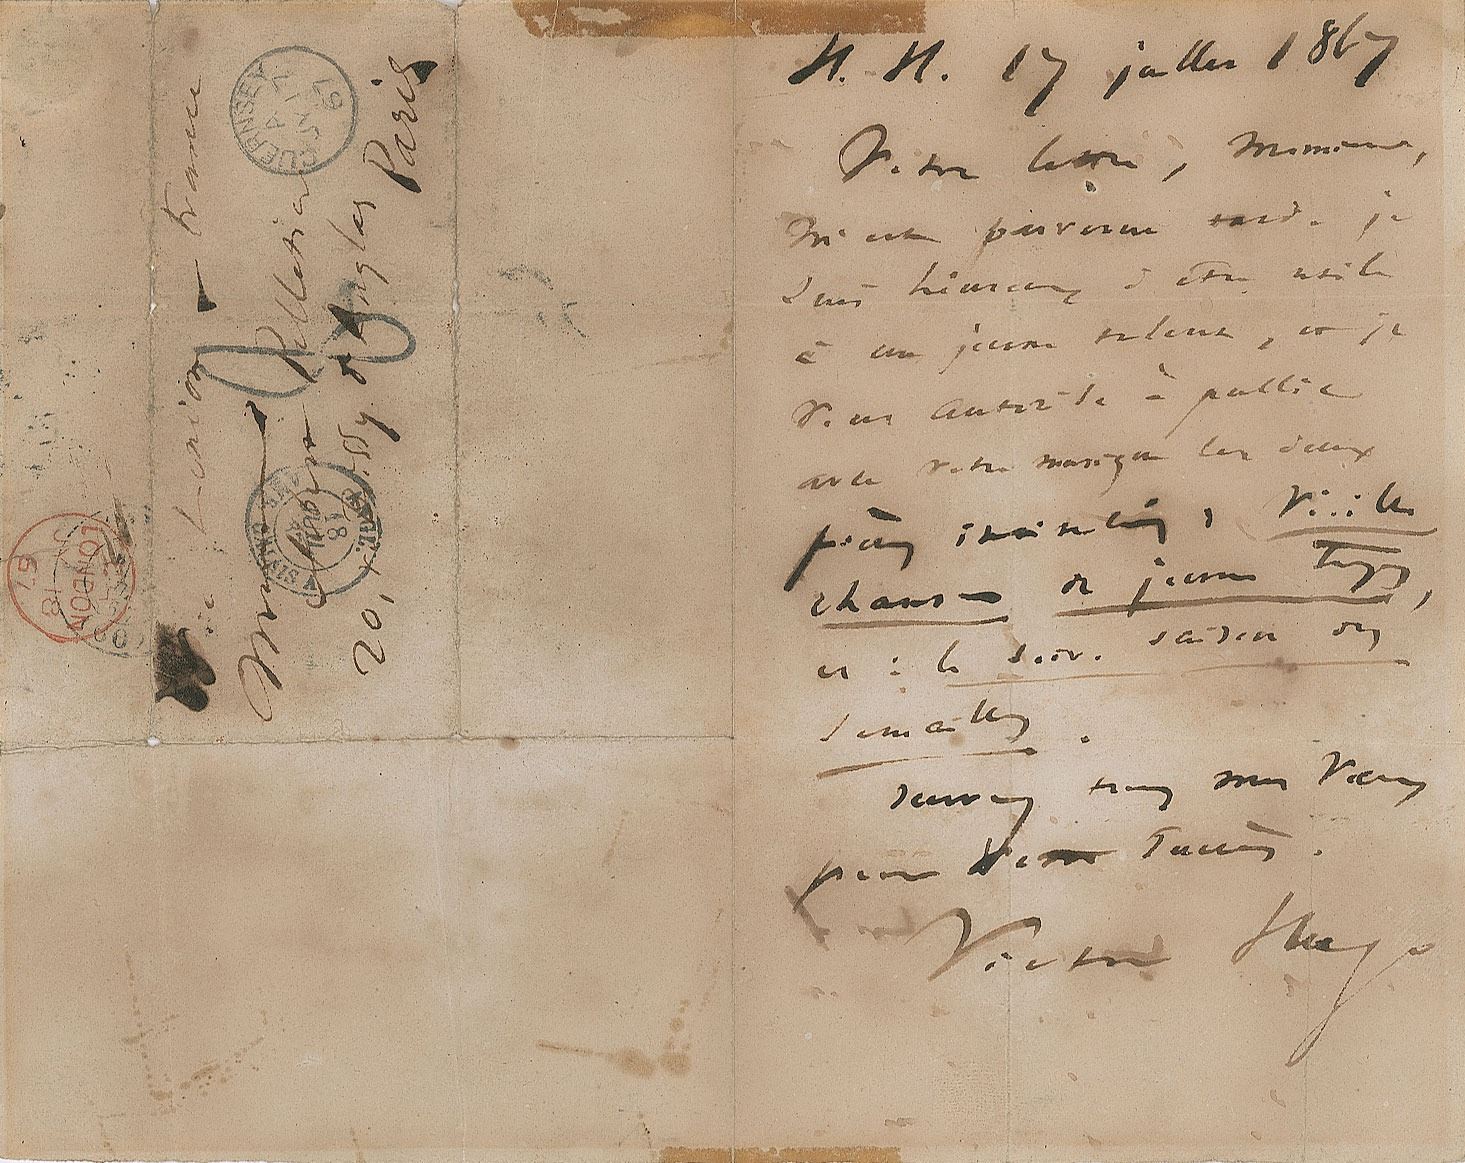 H. H. 17 juillet 1867
Votre lettre, Monsieur,
m'est parvenue tard. je
suis heureux d'être utile
à un jeune talent, et je
vous autorise à publier
avec votre musique les deux
pièces intitulées, Vieille
chanson du jeune temps,
et : le soir. saison des
semailles.
Recevez tous mes vœux
pour votre succès.
Victor Hugo
France
London
Monsieur
20, Boissy d'Anglas Paris
GUERNSEY
JY 17
67
A
LONDON
18
67
18